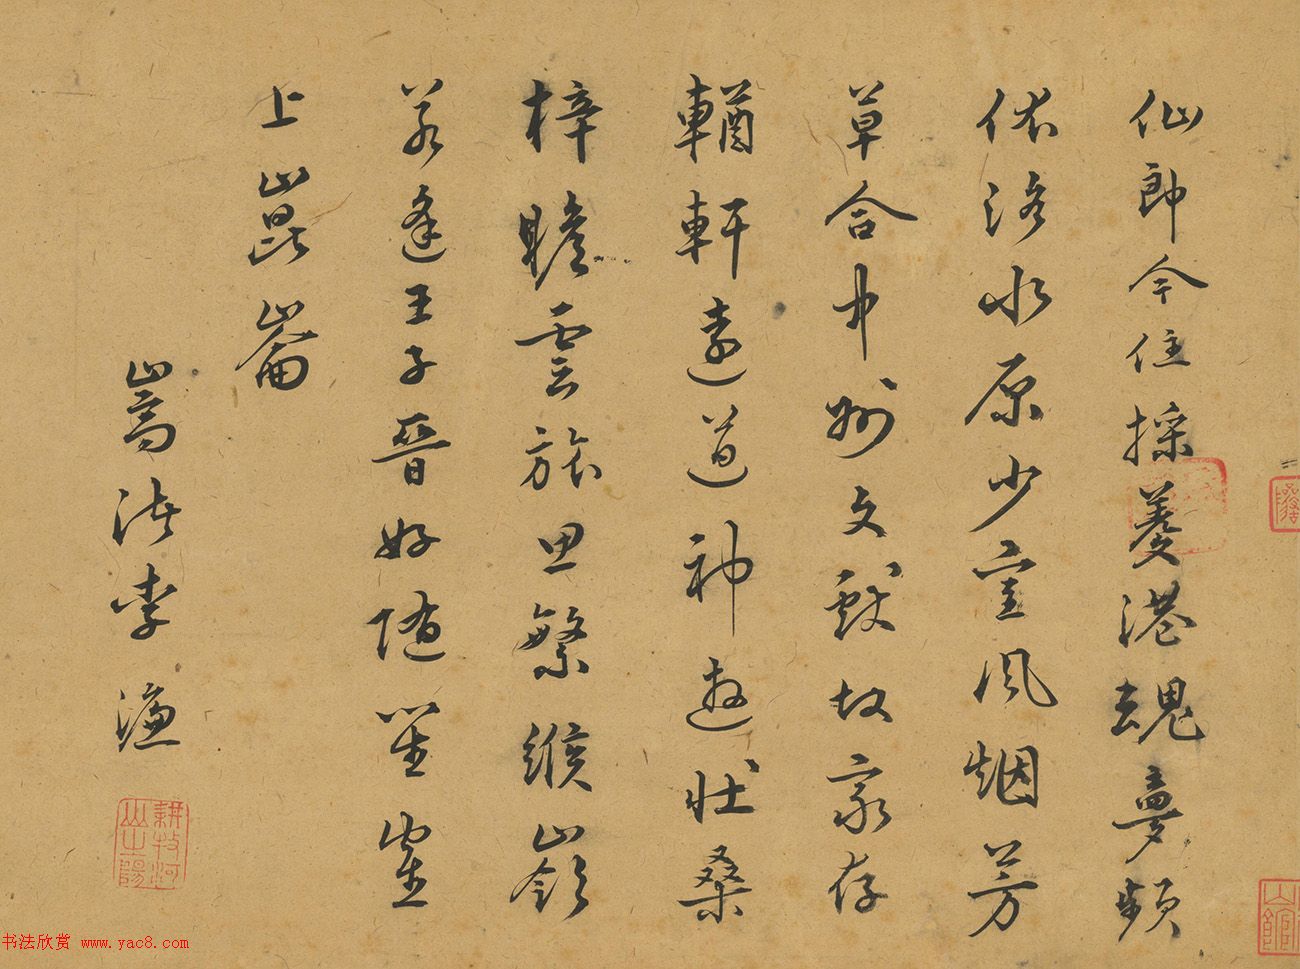 仙郎今住採菱港魂夢頻
依洛水原少室風烟芳
草合中州文獻故家存
輶軒遠道神遊壯桑
梓瞻雲旅思繁緱嶺
若逢王子晉好隨笙寉
上崑崙
嵩渚李濂
耕牧河
山之陽
书法欣赏 www.yac8.com